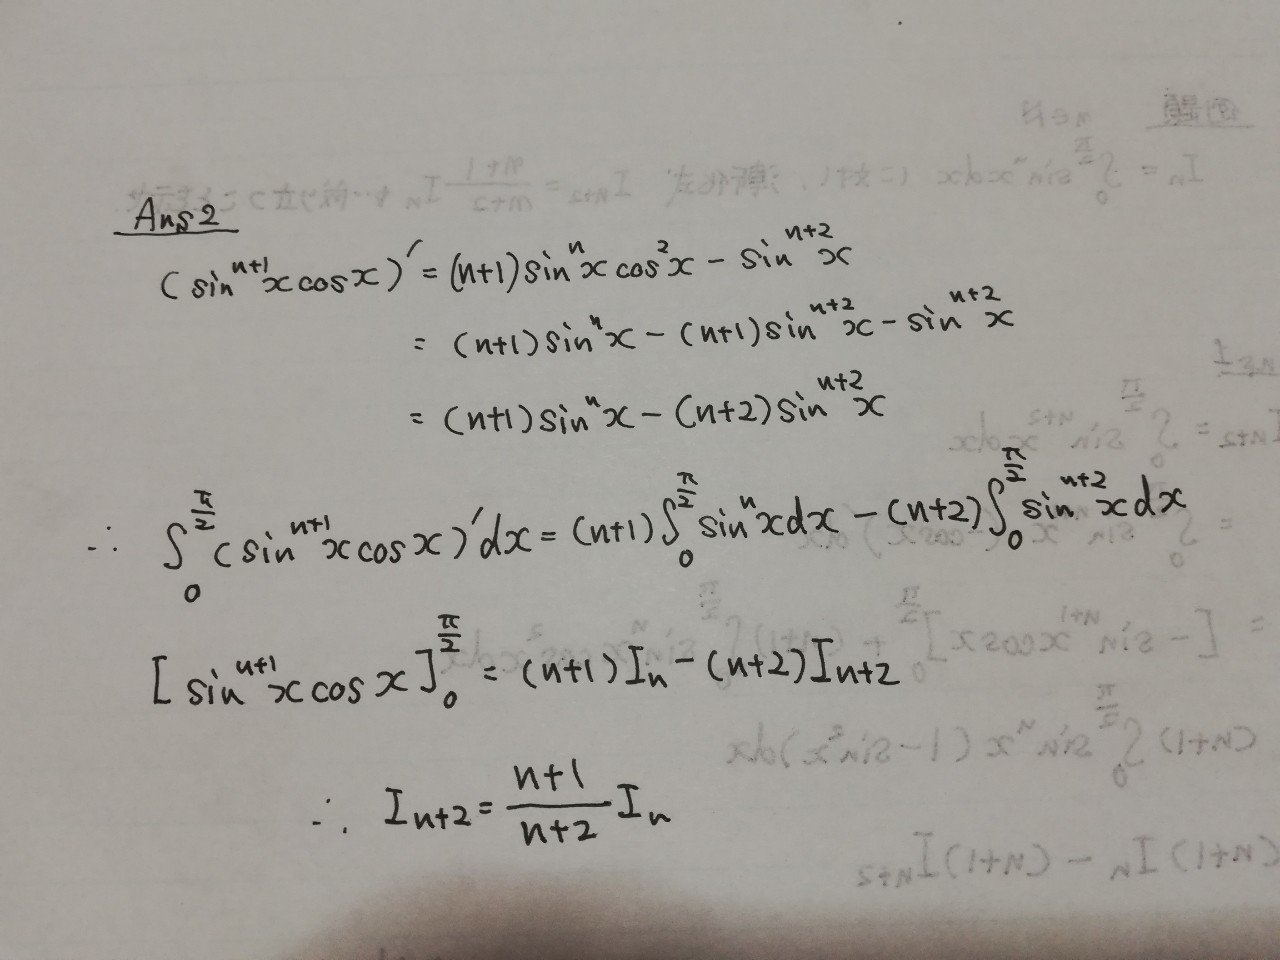 Ans 2
(sin^{n+1}x cos x)' = (n+1)sin^n x cos^2 x - sin^{n+2} x
= (n+1)sin^n x - (n+1)sin^{n+2} x - sin^{n+2} x
= (n+1)sin^n x - (n+2)sin^{n+2} x
∴ ∫_0^{π/2} (sin^{n+1}x cos x)'dx = (n+1)∫_0^{π/2} sin^n x dx - (n+2)∫_0^{π/2} sin^{n+2} x dx
[sin^{n+1}x cos x]_0^{π/2} = (n+1)I_n - (n+2)I_{n+2}
∴ I_{n+2} = \frac{n+1}{n+2} I_n